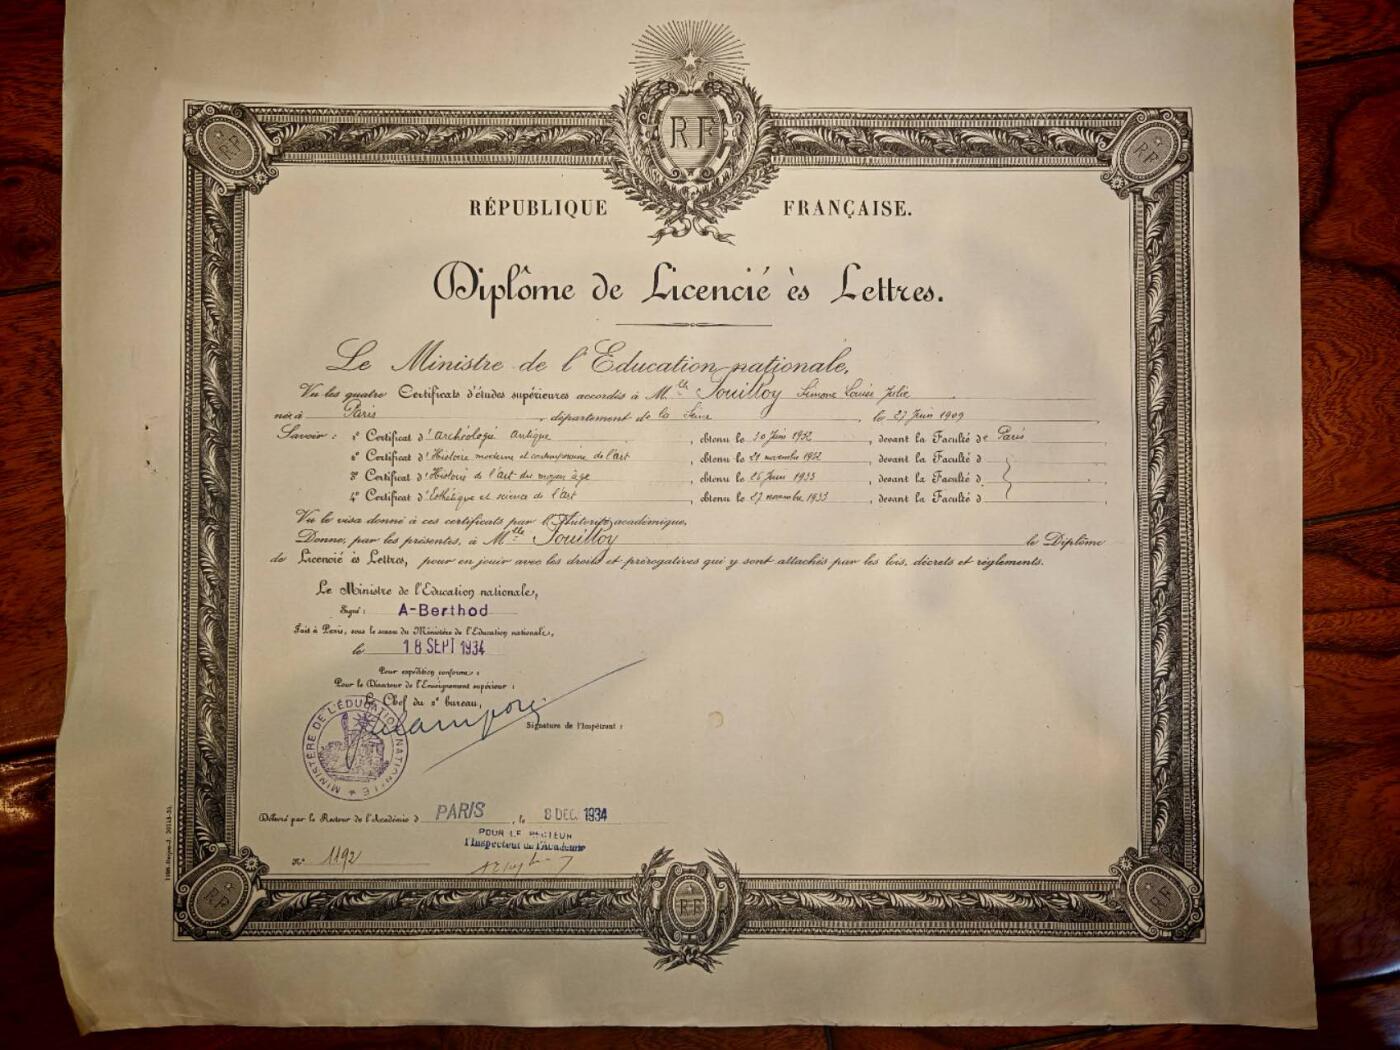 RF
RF
RF
RÉPUBLIQUE FRANÇAISE.
Diplôme de Licencié ès Lettres.
Le Ministre de l'Education nationale,
Vu les quatre Certificats d'études supérieures accordés à M.lle Souilloy Simone Louise Julie
née à Paris, département de la Seine, le 27 Juin 1909
Savoir : 1° Certificat d'Archéologie Antique, obtenu le 30 Juin 1932, devant la Faculté de Paris
2° Certificat d'Histoire moderne et contemporaine de l'art, obtenu le 21 novembre 1932, devant la Faculté d
3° Certificat d'Histoire de l'art du moyen âge, obtenu le 26 Juin 1933, devant la Faculté d
4° Certificat d'Esthétique et science de l'art, obtenu le 27 novembre 1933, devant la Faculté d
Vu le visa donné à ces certificats par l'Autorité académique,
Donne, par les présentes, à Mlle Souilloy le Diplôme
de Licencié ès Lettres, pour en jouir avec les droits et prérogatives qui y sont attachés par les lois, décrets et règlements.
Le Ministre de l'Education nationale,
Signé : A-Berthod
Fait à Paris, sous le sceau du Ministère de l'Education nationale,
le 18 SEPT 1934
Pour expédition conforme :
Pour le Directeur de l'Enseignement supérieur :
Le Chef du 2e bureau,
MINISTÈRE DE L'ÉDUCATION NATIONALE
Signature de l'Impétrant :
Délivré par le Recteur de l'Académie d PARIS, le 8 DEC. 1934
POUR LE RECTEUR
l'Inspecteur de l'Académie
N° 1192
RF
RF
RF